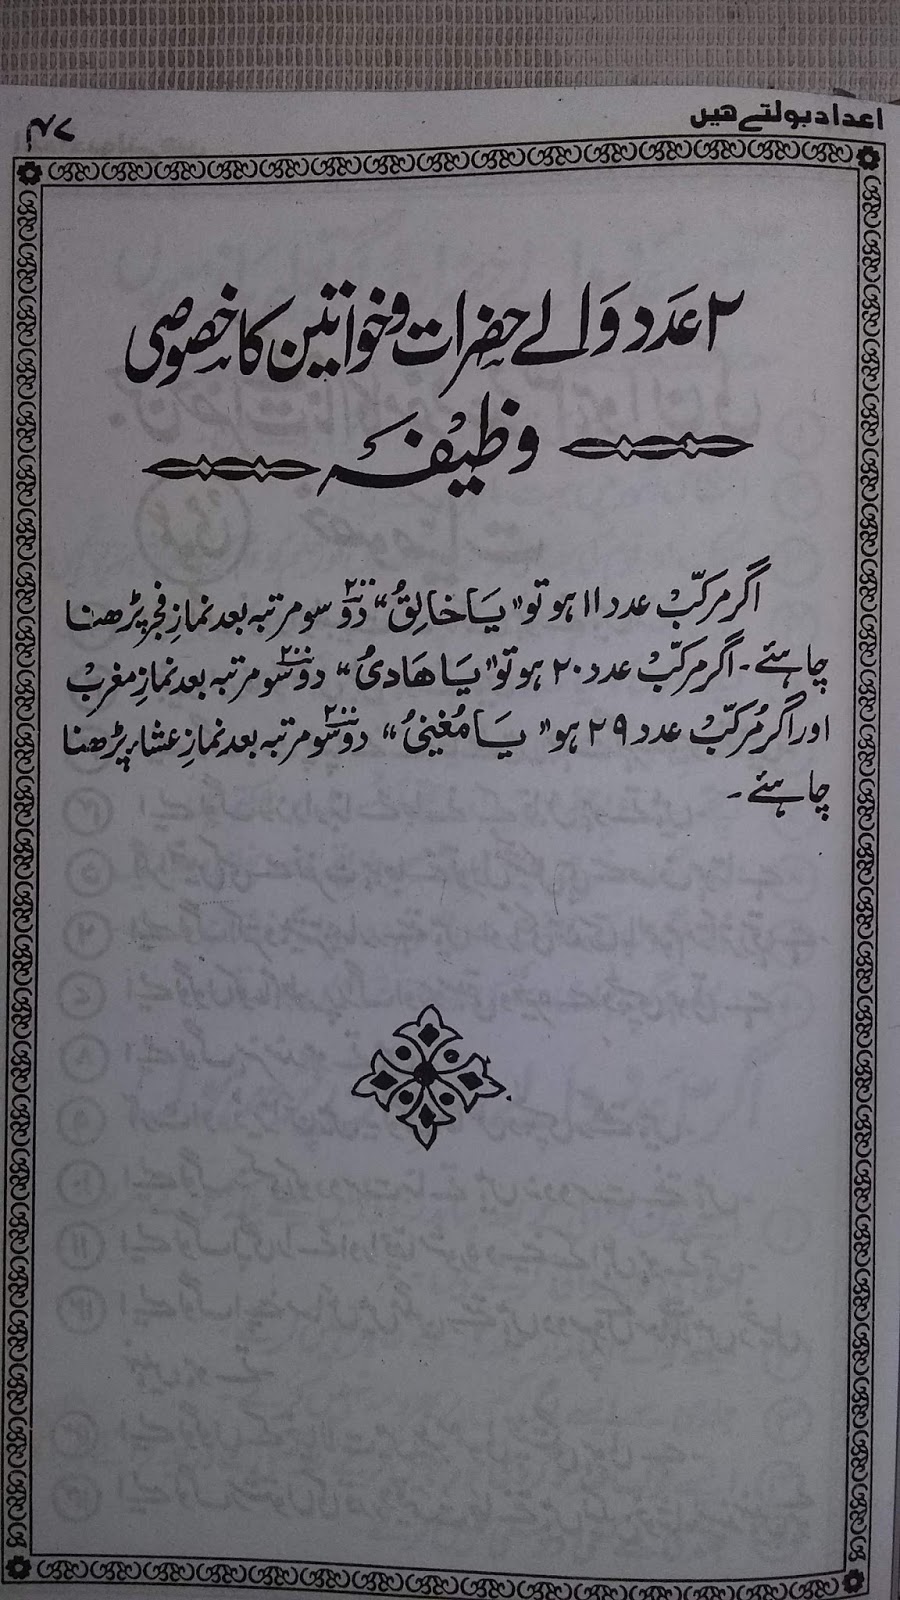 اعداد بولتے ہیں
۴۷
۲ عدد والے حضرات و خواتین کا خصوصی
وظیفہ
اگر مرکّب عدد ۱۱ ہو تو "یَا خالِقُ" دو سو ۲۰۰ مرتبہ بعد نمازِ فجر پڑھنا
چاہئے۔ اگر مرکّب عدد ۲۰ ہو تو "یَا هَادیُ" دو سو ۲۰۰ مرتبہ بعد نمازِ مغرب
اور اگر مُرکّب عدد ۲۹ ہو "یَا مُغنِیُ" دو سو ۲۰۰ مرتبہ بعد نمازِ عشاء پڑھنا
چاہئے۔